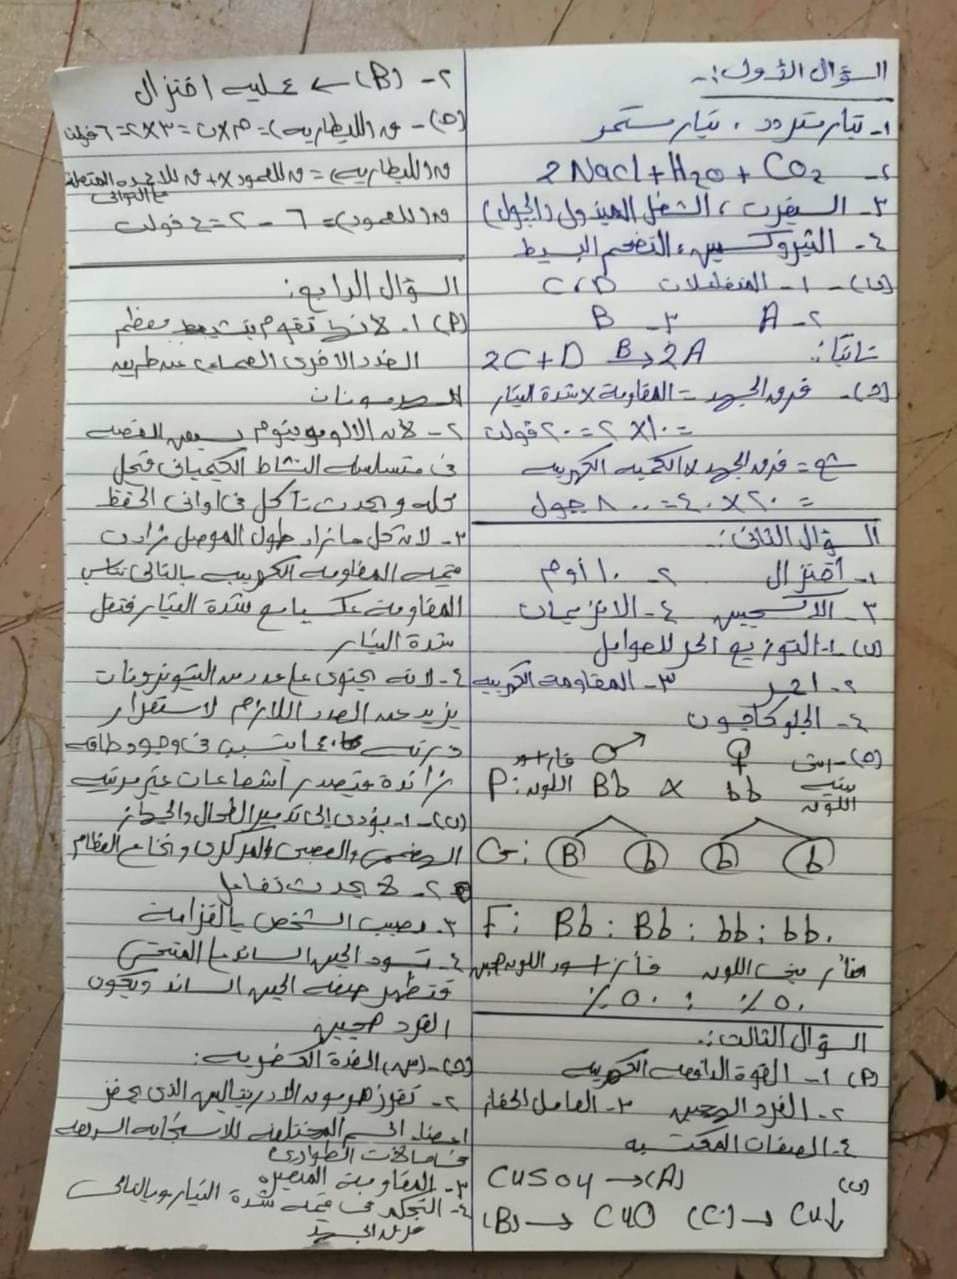 السؤال الأول :-
١- تيار متردد ، تيار مستمر
٢- 2Nacl + H2O + CO2
٣- السيفرت ، الشغل المبذول (الجول)
٤- الثيروكسين ، التضخم البسيط
(ب) - ١- المتفاعلات C , D
٢- A ٣- B
ثانيًا : 2C + D B→ 2A
(ج) - فرق الجهد = المقاومة × شدة التيار
= ١٠ × ٢ = ٢٠ فولت
شغ = فرق الجهد × الكمية الكهربية
= ٢٠ × ٤٠ = ٨٠٠ جول
السؤال الثانى :-
١- أختزال ٢- ١٠ أوم
٣- الأكسجين ٤- الانزيمات
(ب) - ١- التوزيع الحر للعوامل
٢- احمر ٣- المقاومة الكهربية
٤- الجلوكاجون
(ج) - انثى ♀ ♂ فأر اسود
بنية اللون bb × Bb اللون P:
G: B b b b
F: Bb : Bb : bb : bb.
فأر بنى اللون فأر اسود اللون هجين
٥٠ ٪ : ٥٠ ٪
السؤال الثالث :-
(P) ١- القوة الدافعة الكهربية
٢- الفرد الهجين ٣- العامل الحفاز
٤- الصفات المكتسبة
(ب) CuSO4 → (A)
(B) → CuO (C) → Cu↓
٢- (B) ← عملية اختزال
(ج) - ق (للبطارية) = ق × ن = ٣ × ٢ = ٦ فولت
ق (للبطارية) = ق للعمود × + ق للاعمدة المتصلة
مع التوالى
ق (للعمود) = ٦ - ٢ = ٤ فولت
السؤال الرابع :
(P) ١- لانها تقوم بتنشيط معظم
الغدد الاخرى الصماء عن طريق
الهرمونات
٢- لان الالومونيوم يسبق الفضة
فى متسلسلة النشاط الكيميائى فيحل
محله و يحدث تأكل فى اوانى الحفظ
٣- لانه كل ما زاد طول الموصل زادت
قيمة المقاومة الكهربية بالتالى تتناسب
المقاومة عكسيا مع شدة التيار فتقل
شدة التيار
٤- لانه يحتوى على عدد من النيوترونات
يزيد عن العدد اللازم لاستقرار
ذرته مما يتسبب فى وجود طاقة
زائدة فتصدر اشعاعات غير مرئية
(ب) - ١- يؤدى إلى تدمير الطحال والجهاز
الهضمى والعصبى المركزى ونخاع العظام
٢- لا يحدث تفاعل
٣- يصيب الشخص بالقزامة
٤- يسود الجين السائد على المتنحى
فتظهر صفة الجين السائد ويكون
الفرد هجين
(ج) - (س) الغدة الكظرية :
٢- تفرز هرمون الادرينالين الذى يحفز
اعضاء الجسم المختلفة للاستجابة السريعة
فى حالات الطوارئ
٣- المقاومة المتغيرة
٤- التحكم فى قيمة شدة التيار وبالتالى
فرق الجهد